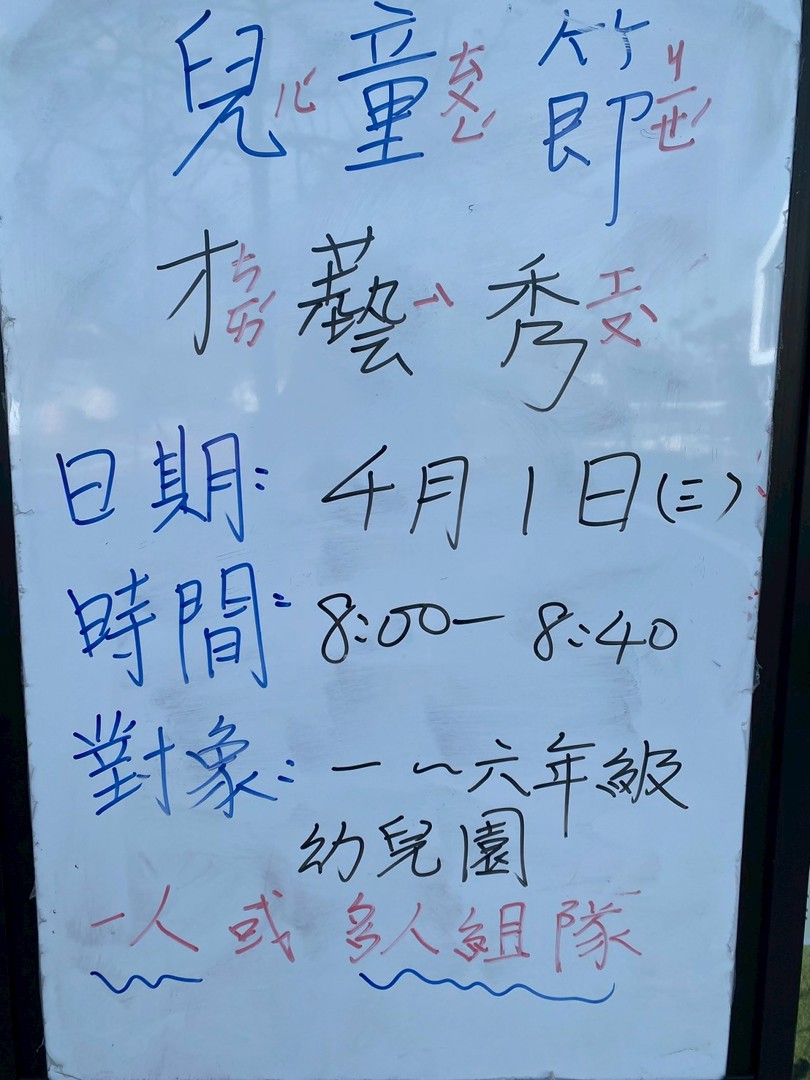 兒ㄦˊ童ㄊㄨㄥˊ節ㄐㄧㄝˊ
才ㄘㄞˊ藝ㄧˋ秀ㄒㄧㄡˋ
日期：4月1日(三)
時間：8:00－8:40
對象：一～六年級
幼兒園
一人或多人組隊